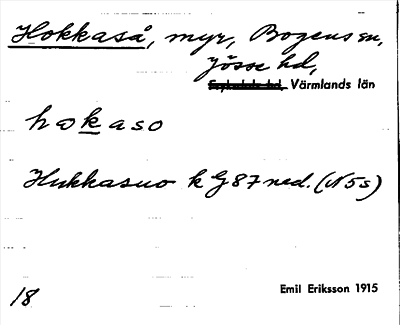 Hokkaså, myr, Bogens sn,
Jösse hd,
Värmlands län
hokaso
Hukkasuo k G 87 ned. (N 5 s)
18
Emil Eriksson 1915